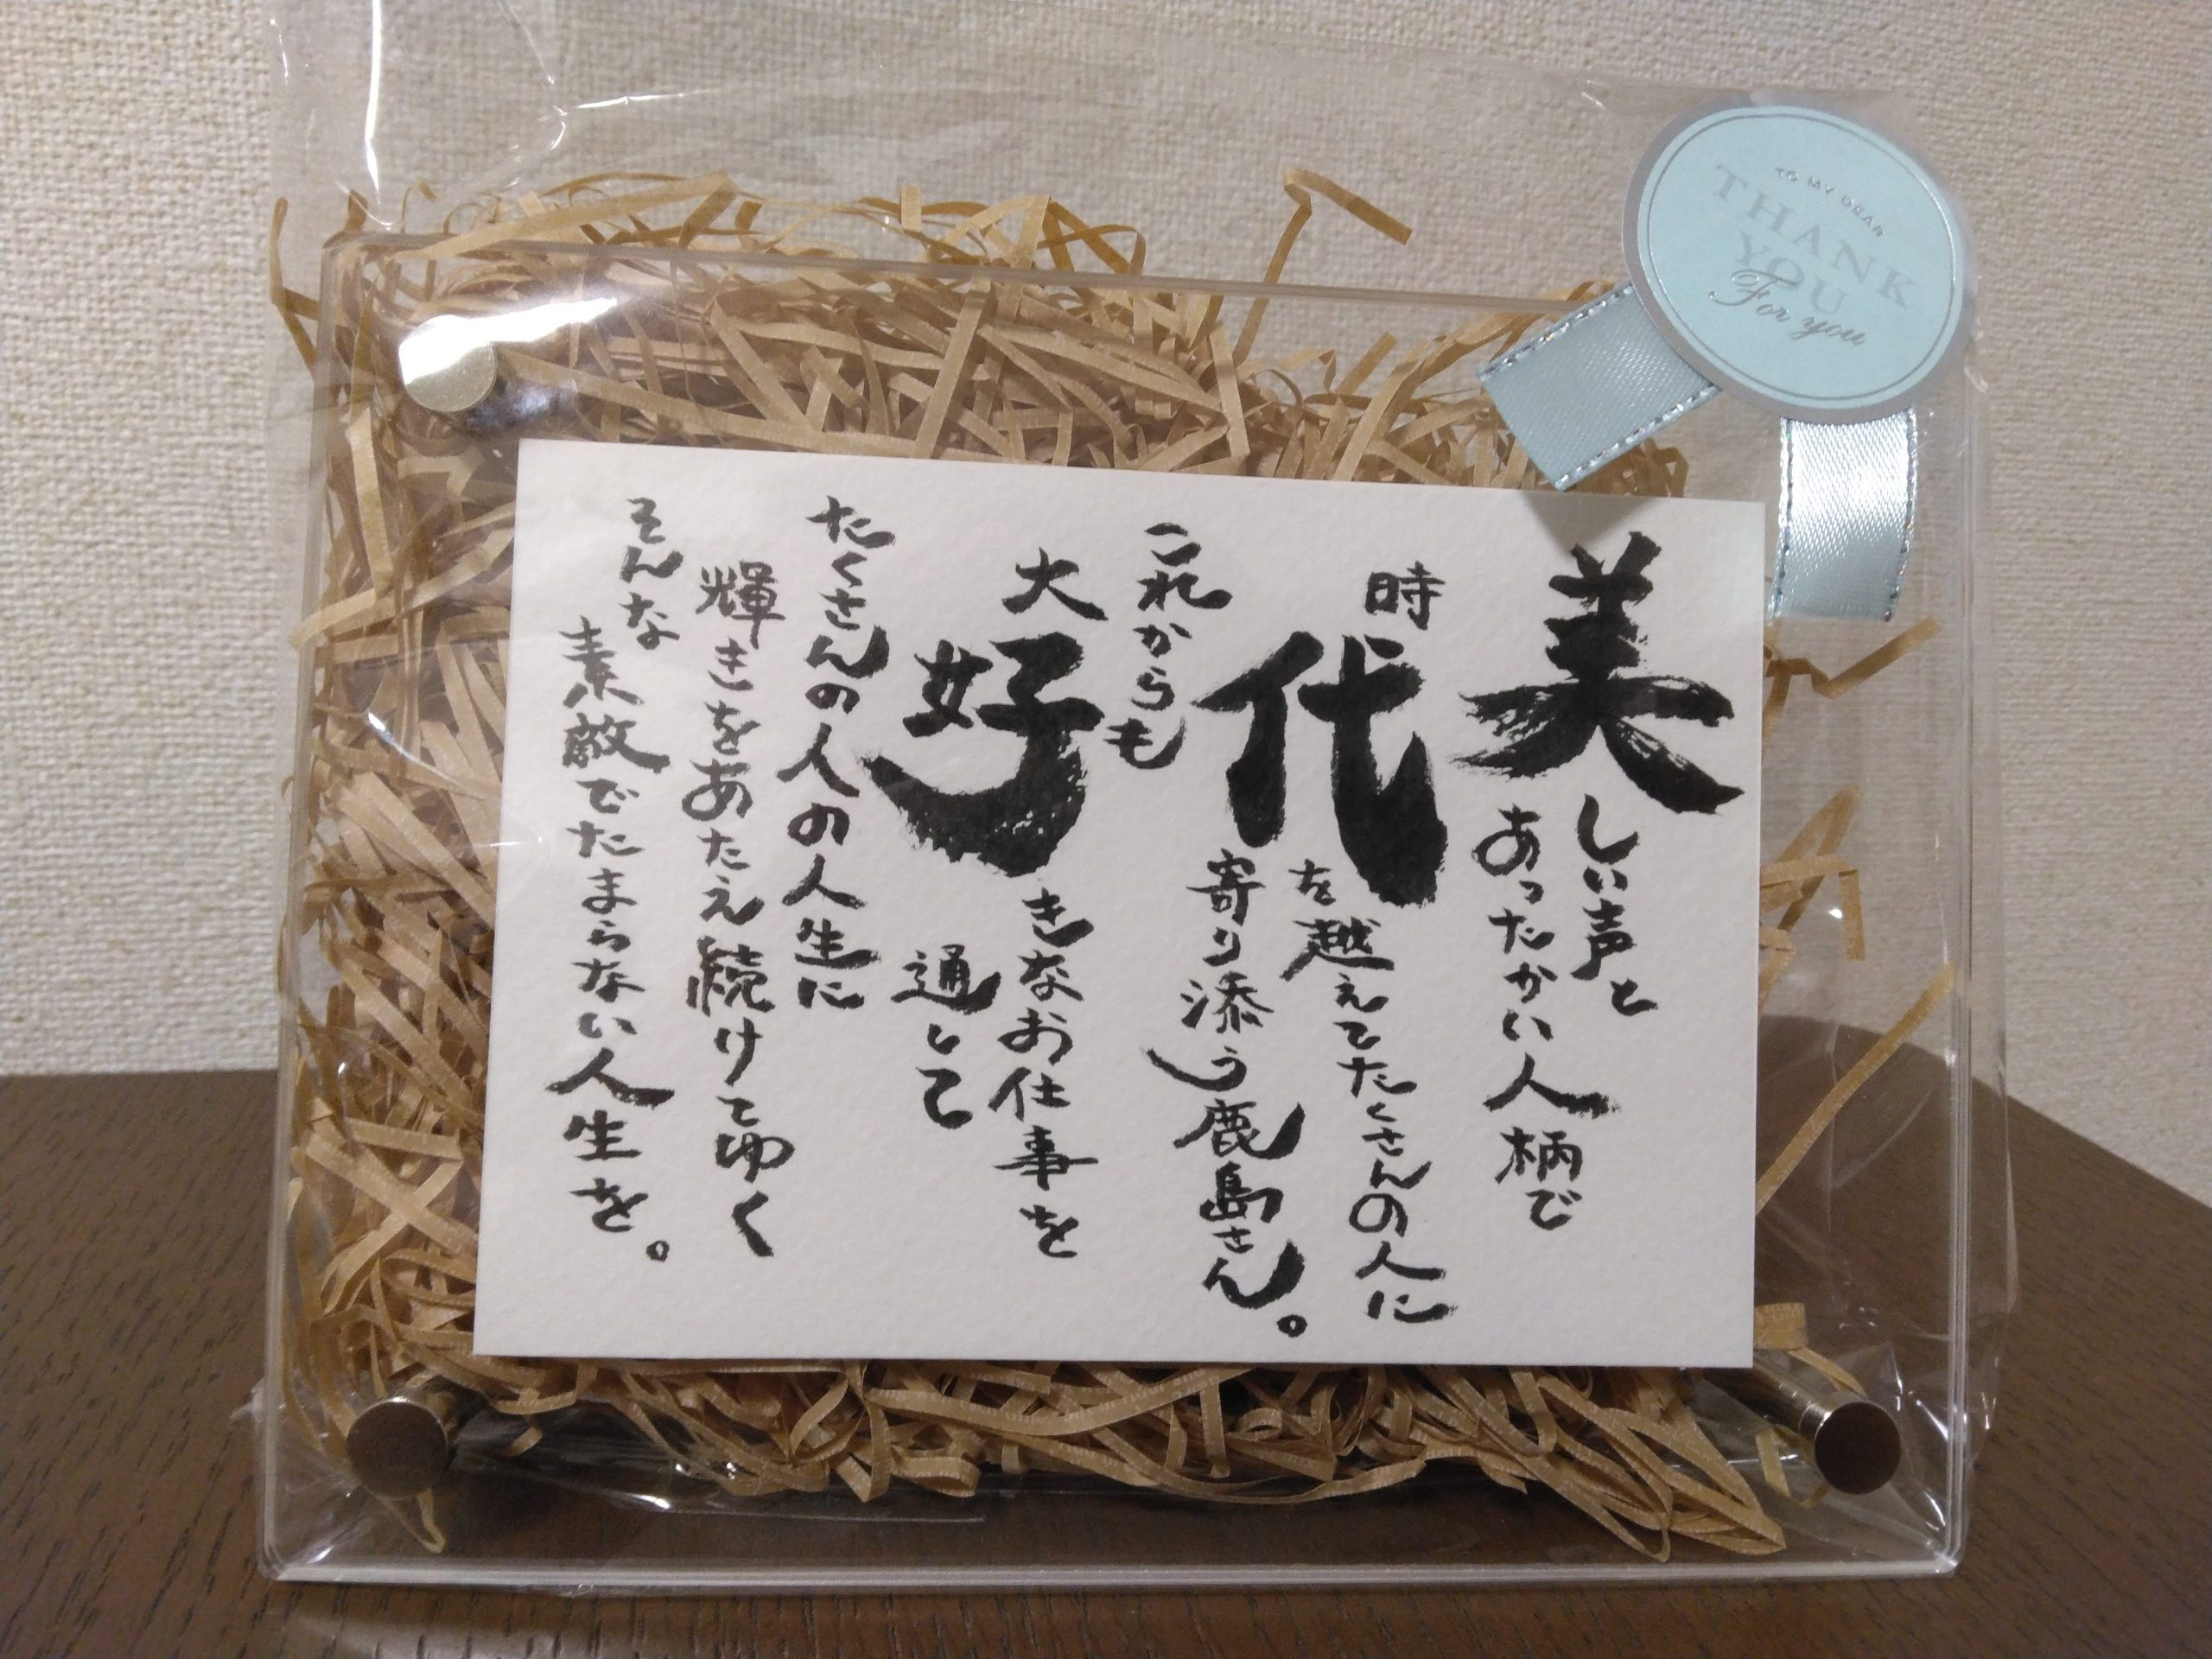 美しい声と
あったかい人柄で
時代を越えてたくさんの人に
寄り添う鹿島さん。
これからも
大好きなお仕事を
通して
たくさんの人の人生に
輝きをあたえ続けてゆく
そんな
素敵でたまらない人生を。
TO MY DEAR
THANK
YOU
For you